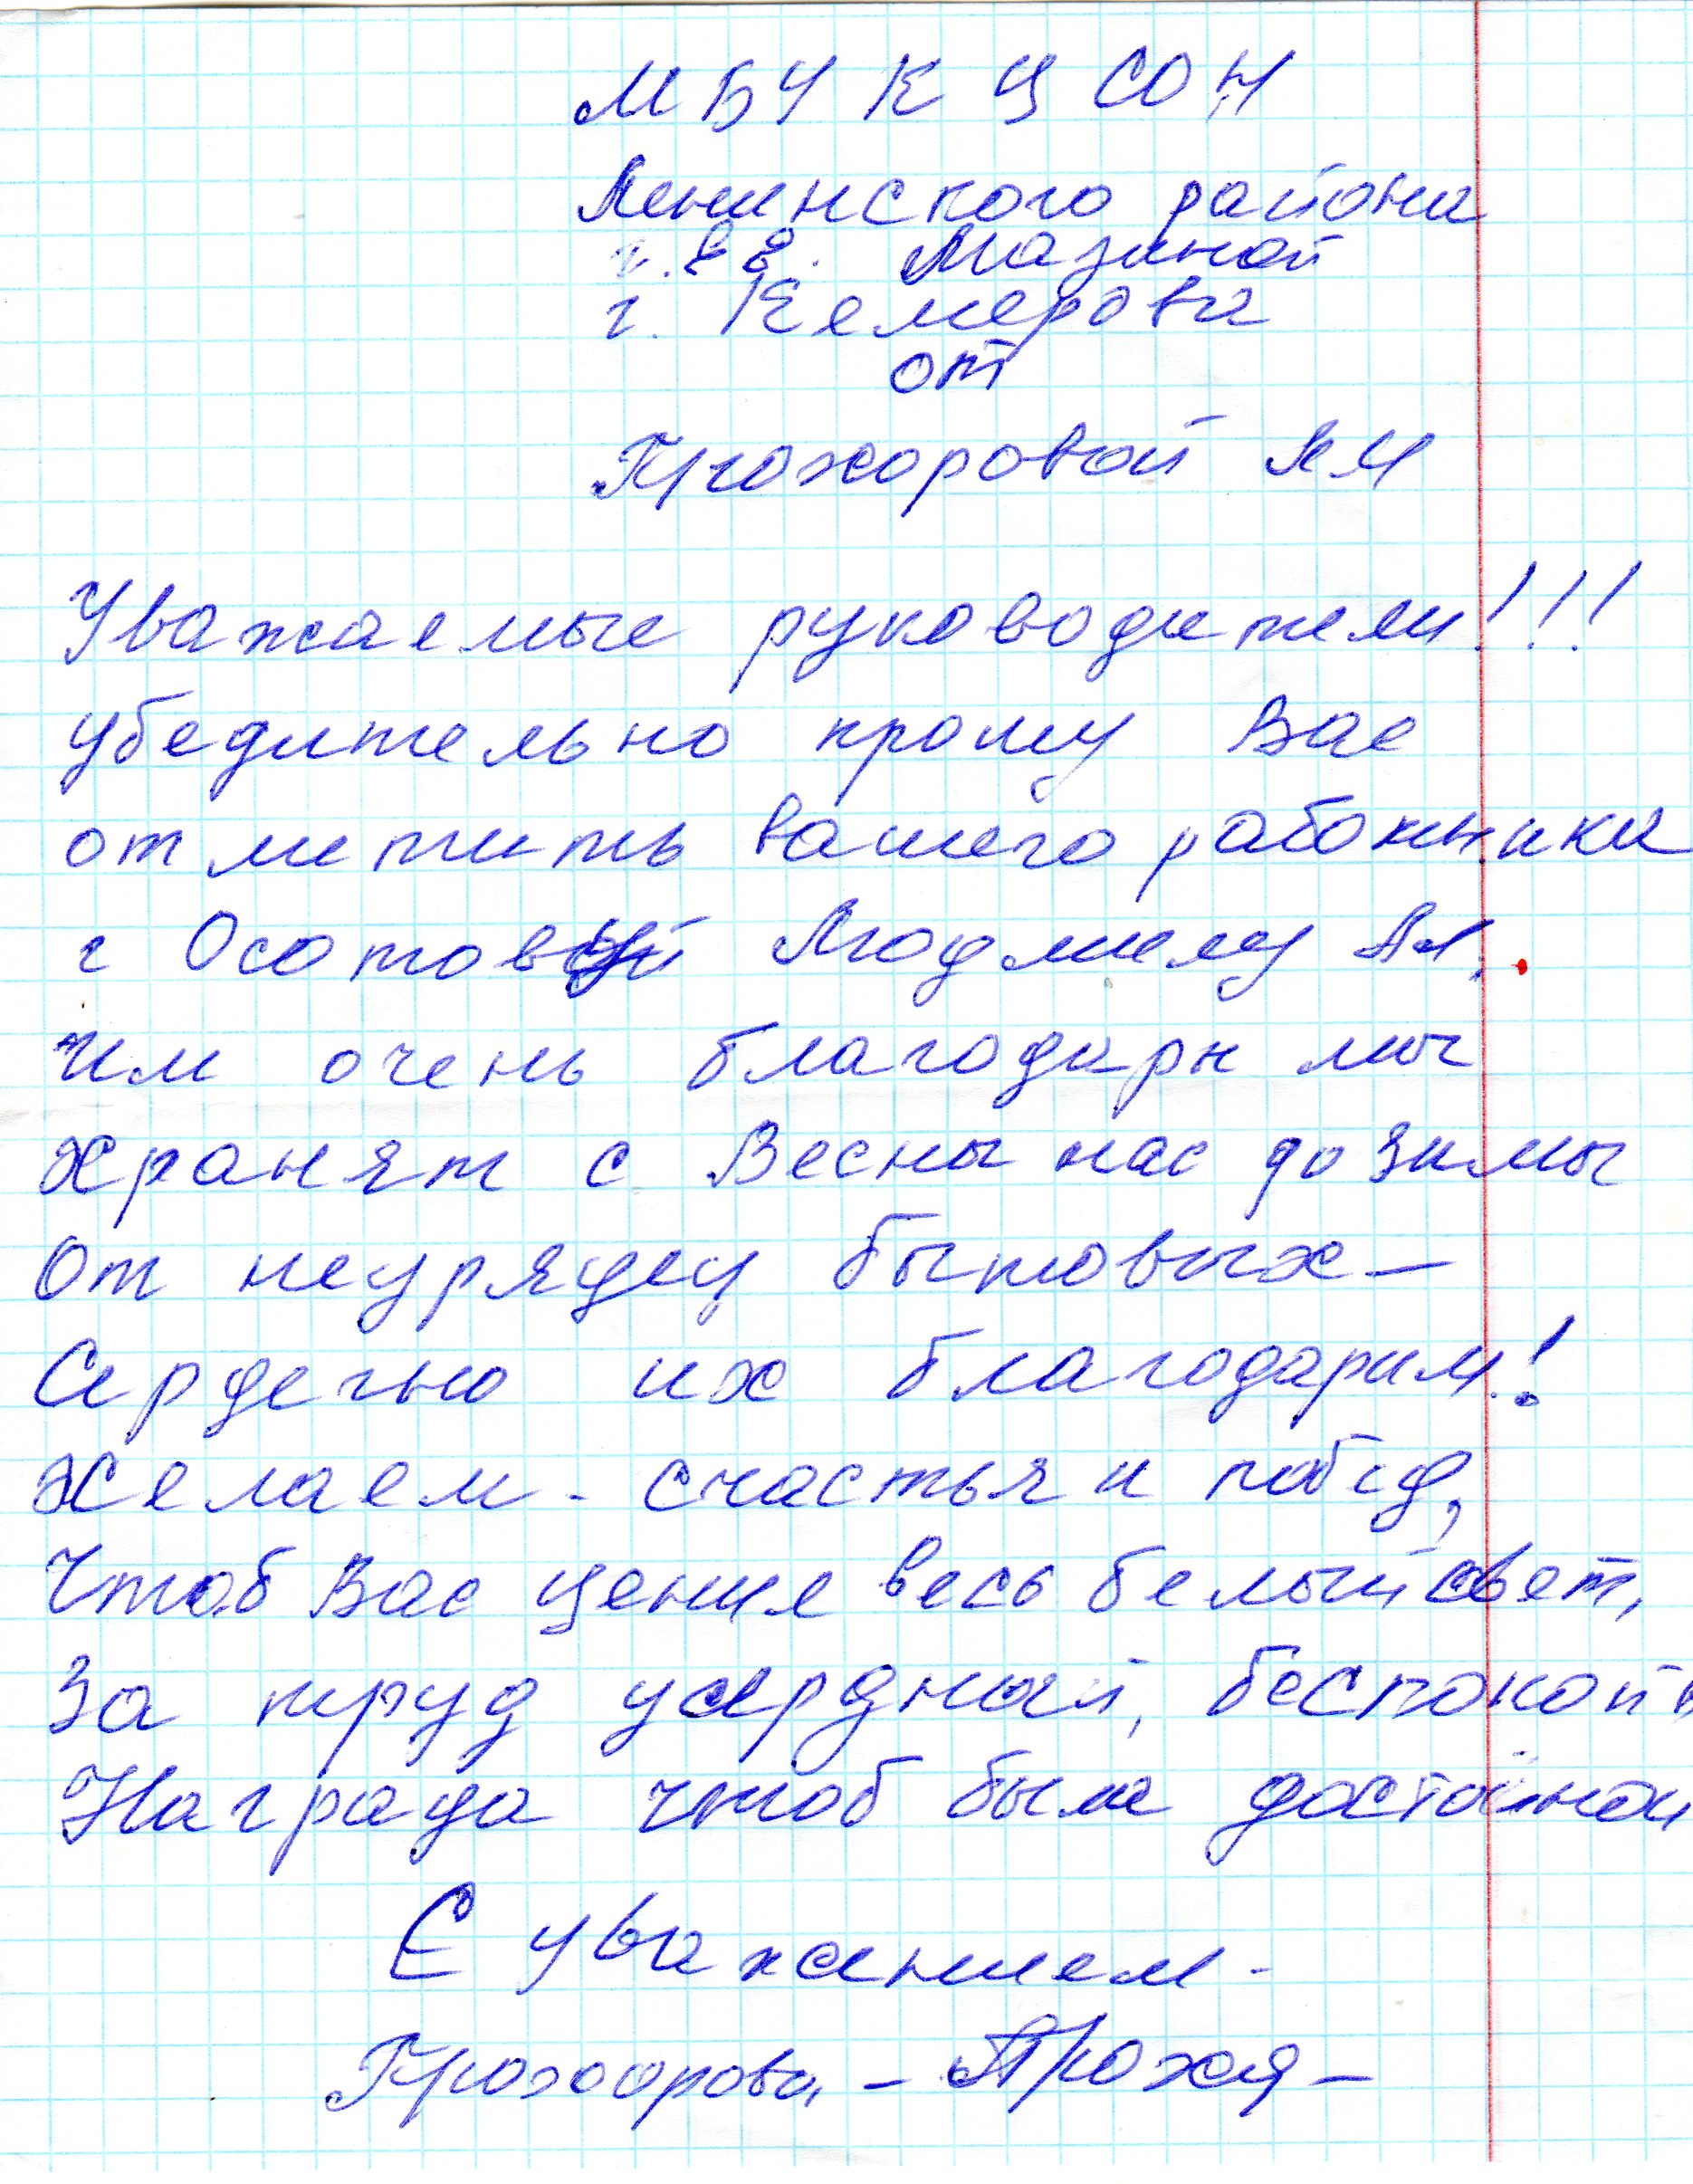 МБУ КЦСОН
Ленинского района
г. В.В. Мазиной
г. Кемерова
от
Прохоровой
Уважаемые руководители!!!
убедительно прошу Вас
отметить вашего работника
г Осотову Людмилу
Им очень благодарн мы
хранят с Весны нас до Зимы
От неурядец бытовых –
Сердечно их благодарим!
Желаем - счастья и побед,
Чтоб Вас ценил весь белый свет,
За труд усердный, беспокойн
Награда чтоб была достойной
С уважением -
Прохорова –